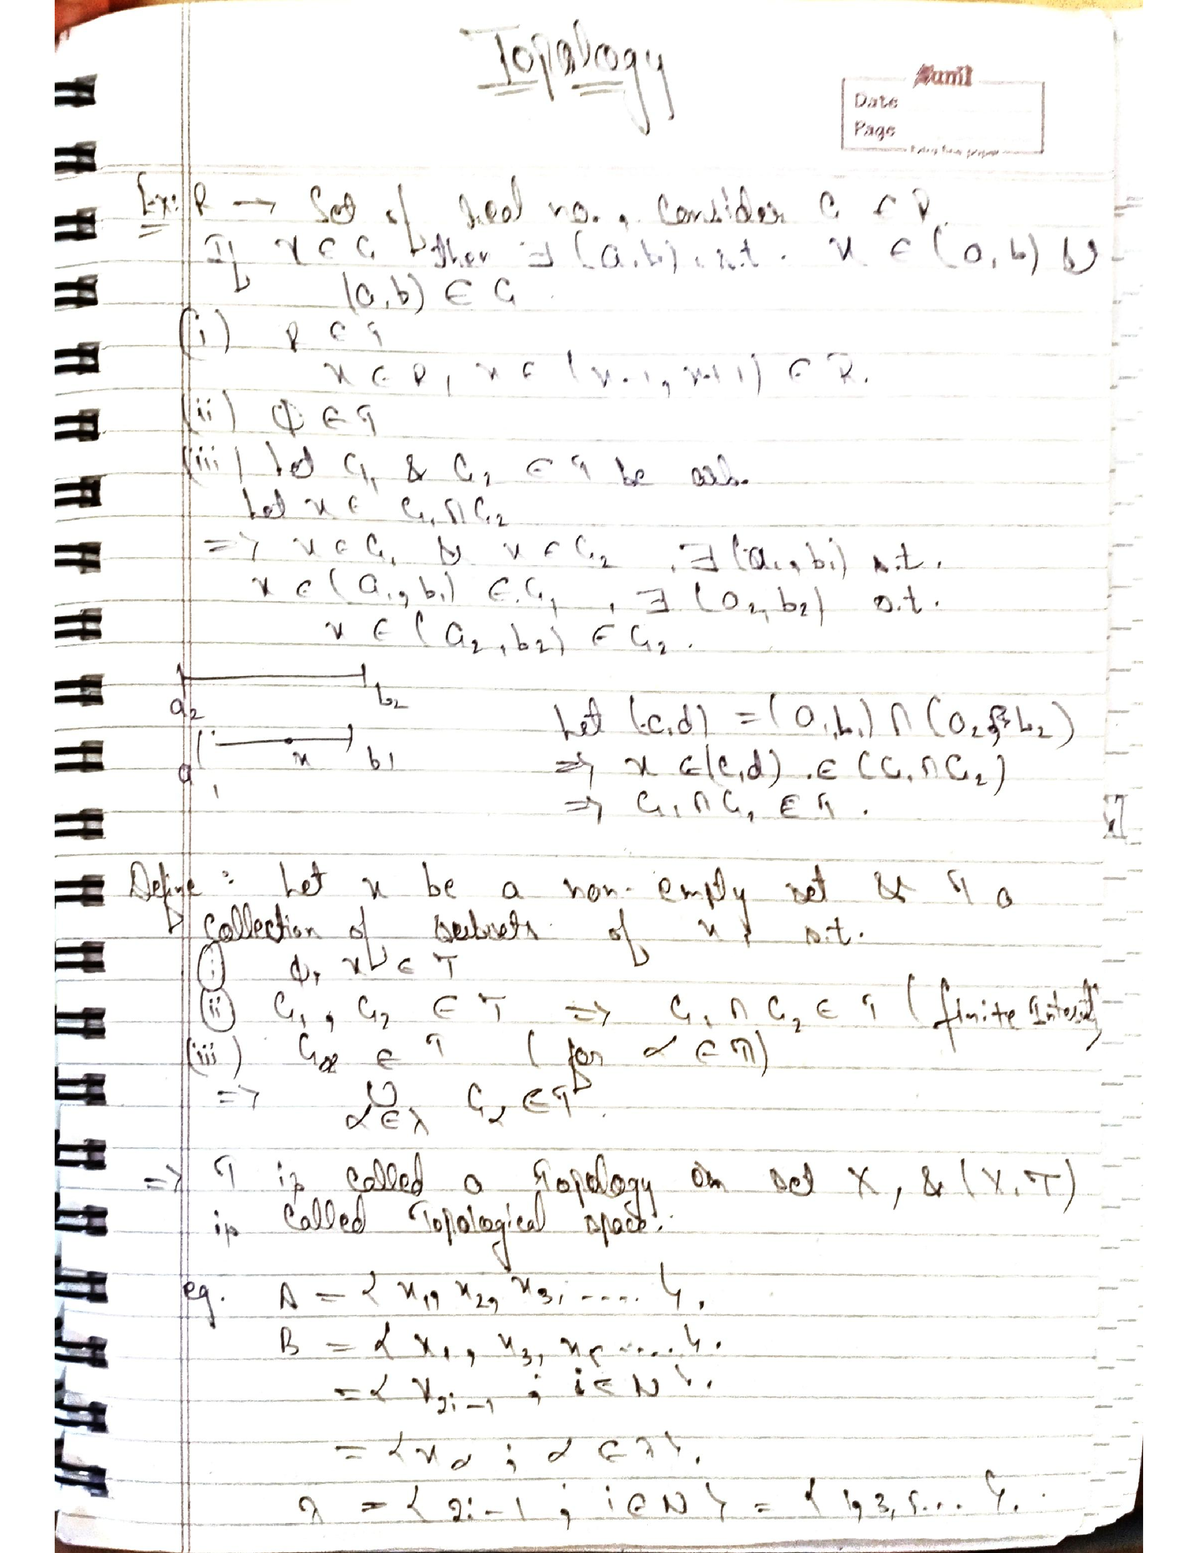 Topology
Sunil
Date
Page
Ex: R → Set of real no., Consider G ⊂ R.
If x ∈ G then ∃ (a,b) s.t. x ∈ (a,b) &
(a,b) ∈ G
(i) R ∈ τ
x ∈ R, x ∈ (x-1, x+1) ∈ R.
(ii) φ ∈ τ
(iii) Let G₁ & G₂ ∈ τ be arb.
Let x ∈ G₁ ∩ G₂
=> x ∈ G₁ & x ∈ G₂, ∃ (a₁, b₁) s.t.
x ∈ (a₁, b₁) ∈ G₁, ∃ (a₂, b₂) s.t.
x ∈ (a₂, b₂) ∈ G₂.
a₂ b₂
a₁ x b₁
Let (c,d) = (a₁,b₁) ∩ (a₂, b₂)
=> x ∈ (c,d) ∈ (G₁ ∩ G₂)
=> G₁ ∩ G₂ ∈ τ.
Define: Let x be a non-empty set & τ a
Collection of subsets of x s.t.
(i) φ, x ∈ T
(ii) G₁, G₂ ∈ T => G₁ ∩ G₂ ∈ τ (finite
(iii) Gα ∈ τ (for α ∈ λ)
=> ∪ Gα ∈ τ
α∈λ
=> τ is called a Topology on set X, & (X,T)
is called Topological space.
eg. A = {x₁, x₂, x₃, ....}.
B = {x₁, x₃, x₅ ....}.
= {x₂ᵢ₋₁ ; i ∈ N}.
= {xα ; α ∈ λ}.
λ = {2i-1 ; i ∈ N} = {1, 3, 5...}.